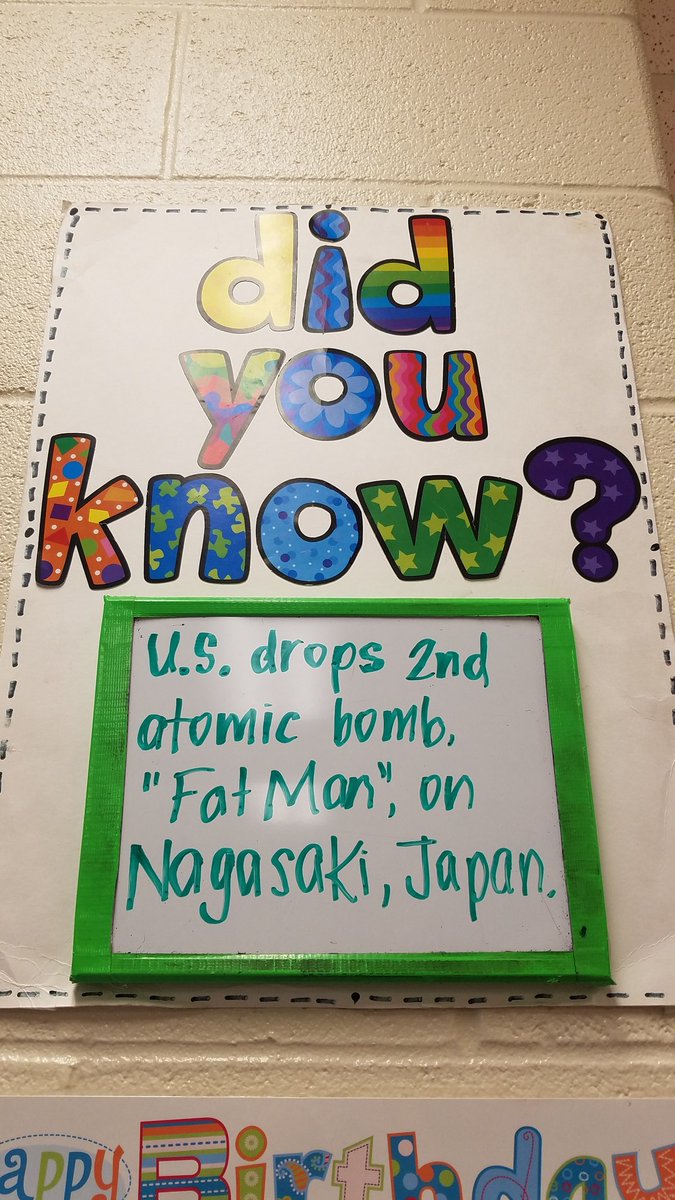 did
you
know?
U.S. drops 2nd
atomic bomb,
"Fat Man", on
Nagasaki, Japan.
Happy Birthday